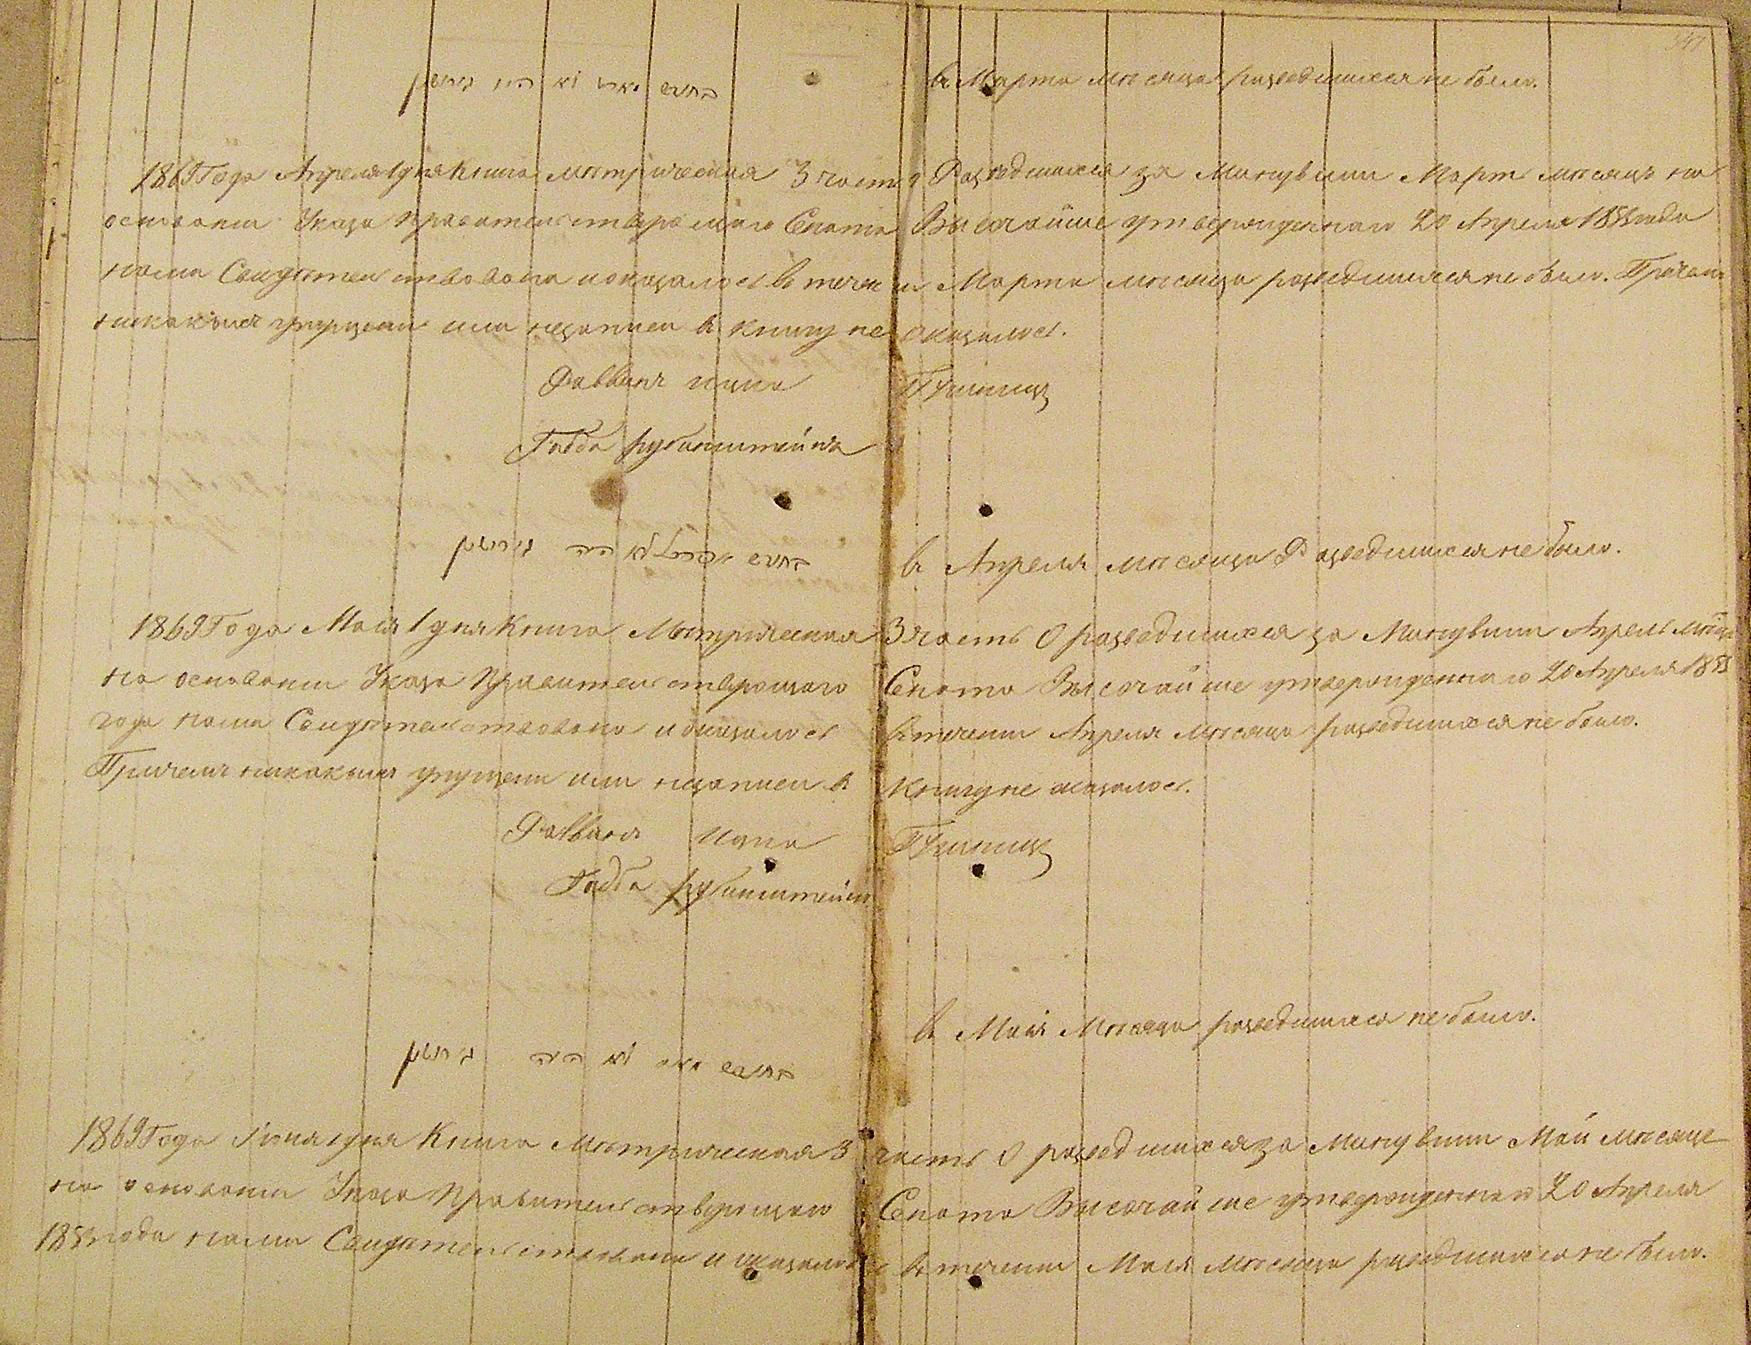 בחודש מארט לא היו גירושין
в Марта месяца разведшихся не было.
1869 Года Апреля 1 дня Книга метрическая 3 часть Разведшихся за Минувши Март месяцъ на
основани Указа Правительствующаго Сената Высочайше утвержденнаго 20 Апреля 1855 года
нами Свидетельствована и оказалось в течени Марта месяца разведшихся не было. Причем
никакых упущени или незаписи в книгу не оказалось.
Раввин
Габба Рубинштейнъ
בחודש אפריל לא היה גירושין
в Апреля месяца Разведшихся не было.
1869 Года Мая 1 дня Книга Метрическая 3 часть О разведшихся за Минувши Апрель месяц
на основани Указа Правительствующаго Сената Высочайше утвержденнаго 20 Апреля 1855
года нами Свидетельствована и оказалось в течени Апреля месяца разведшихся не было.
Причемъ никакыхъ упущени или незаписи в книгу не оказалось.
Раввин
Габба Рубинштейн
в Мая Месяца разведшихся не было.
בחודש מאי לא היה גירושין
1869 Года Июня 1 дня Книга Метрическая 3 часть О разведшихся за Минувши Май месяце
на основани Указа Правительствующаго Сената Высочайше утвержденнаго 20 Апреля
1855 года нами Свидетельствована и оказалось в течени Мая месяца разведшихся не было.